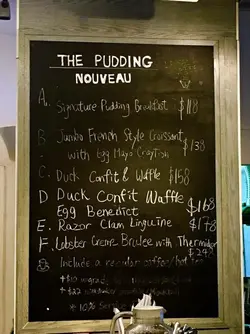 THE PUDDING
NOUVEAU
A. Signature Pudding Breakfast $118
B. Jumbo French Style Croissant
with Egg Mayo Crayfish $138
C. Duck Confit & Waffle $158
D Duck Confit Waffle $168
Egg Benedict
E. Razor Clam Linguine $178
F. Lobster Creme Brulee with Thermidor
$248
Include a regular coffee/hot tea
* 10% Service